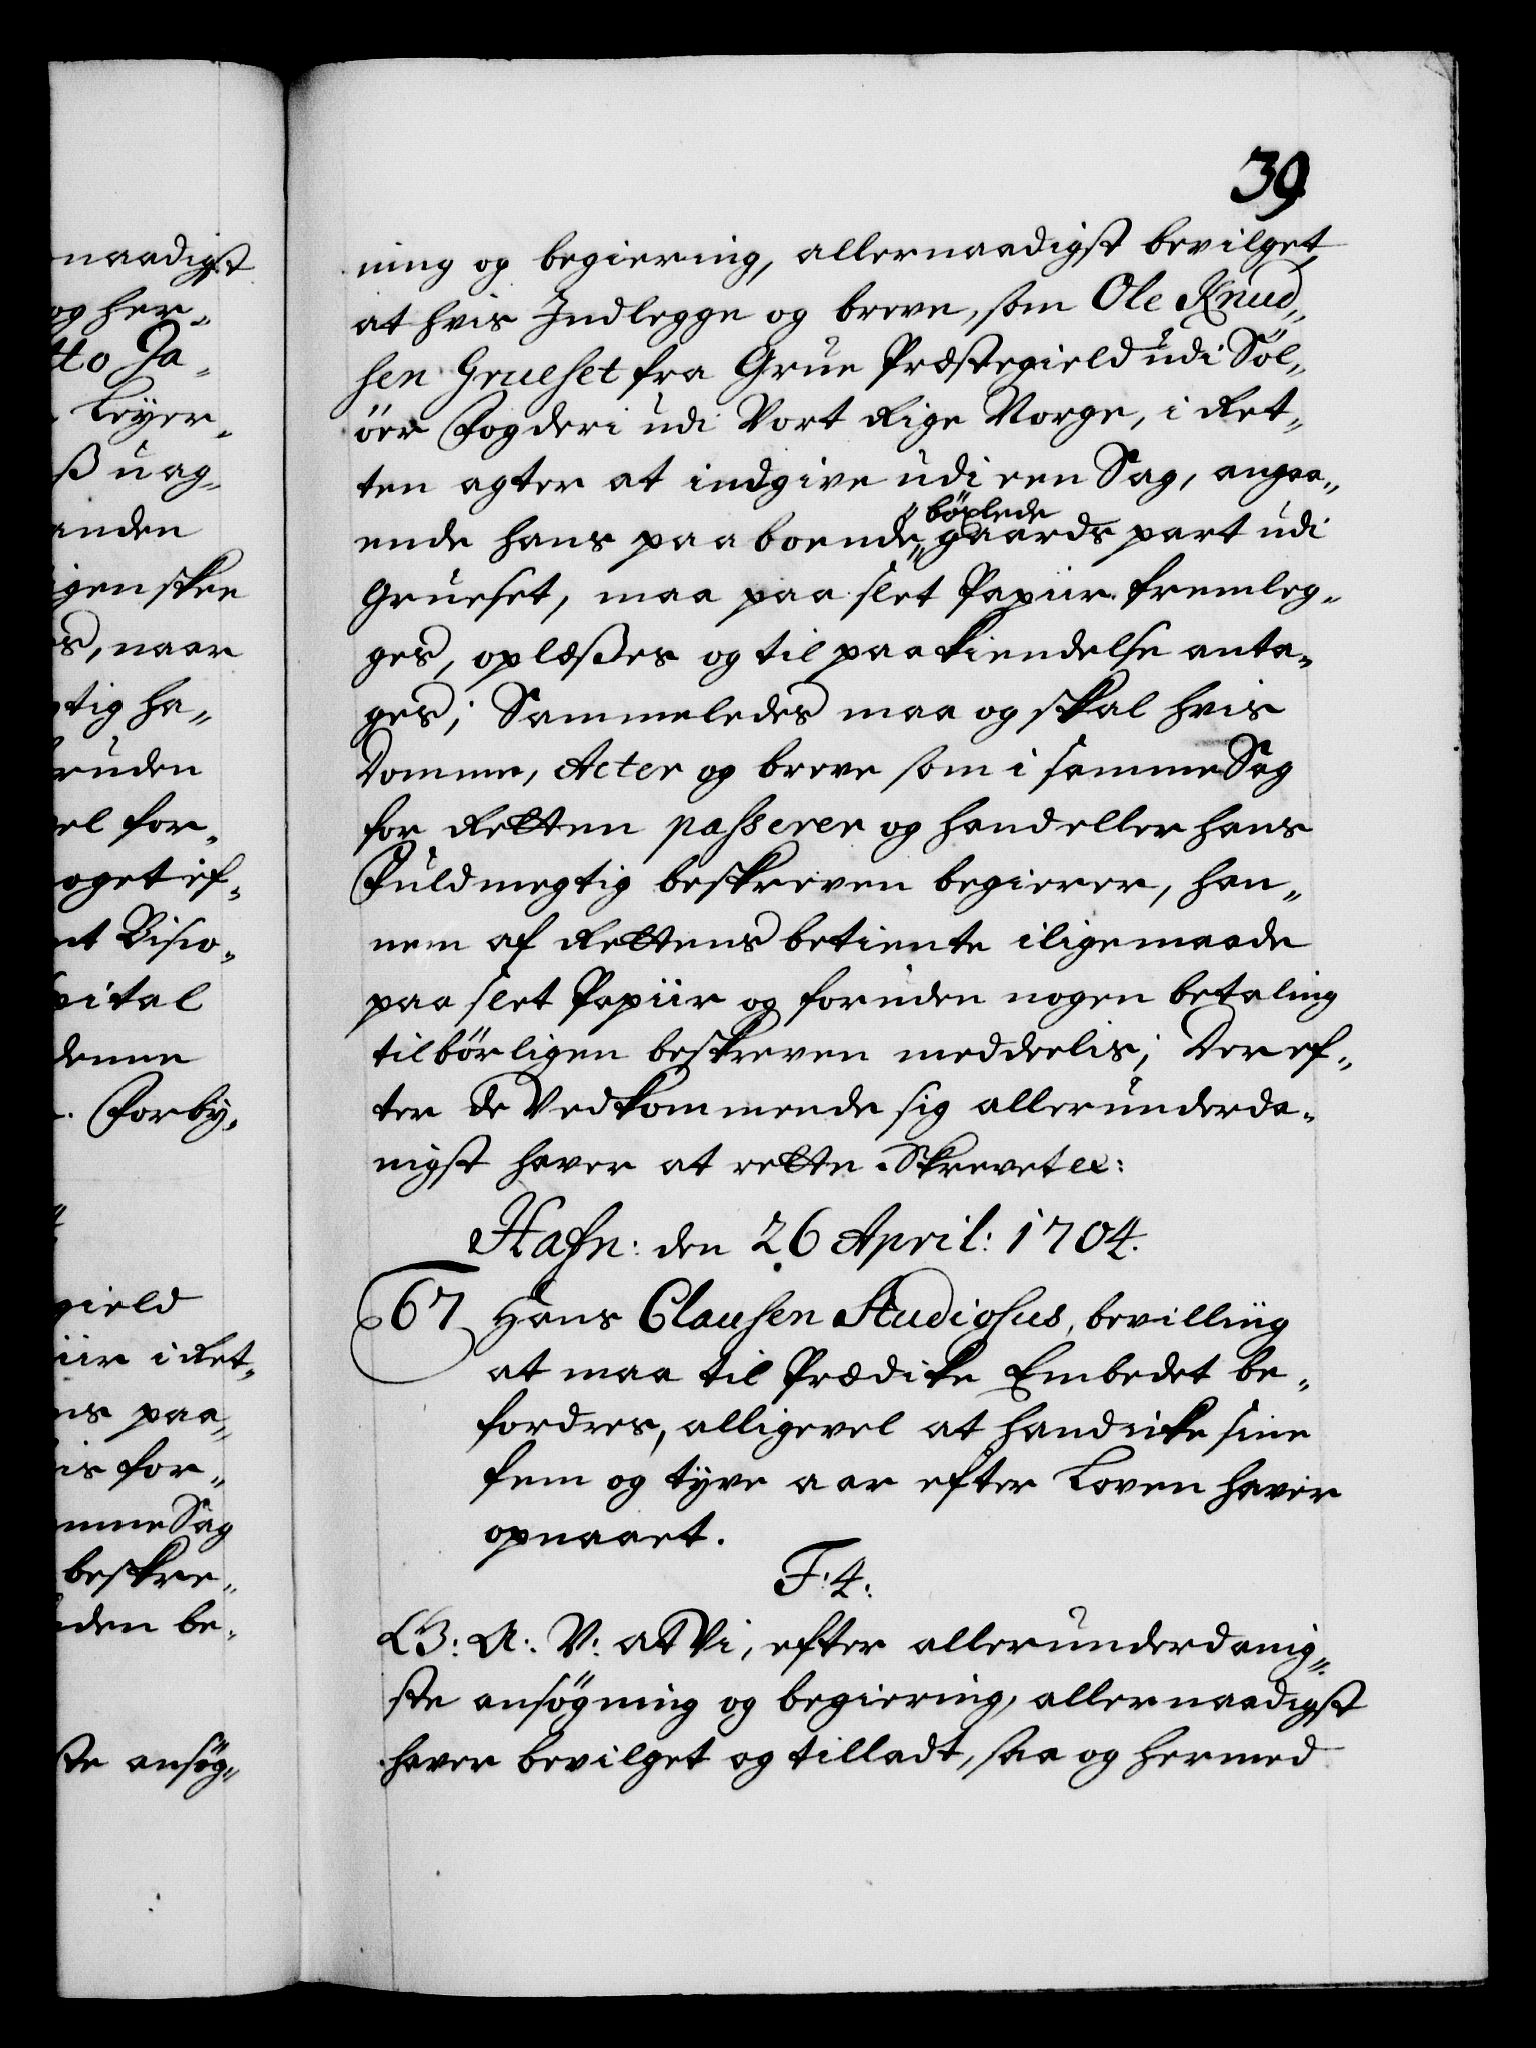 39
ning og begiering, allernaadigst bevilget,
at hvis Indlegge og breve, som Ole Knud„
sen Grueset fra Grue Præstegield udi Sol„
öer Fogderi udi Vort Rige Norge, i Ret„
ten agter at indgive udi een Sag, angaa„
„böxlede
ende hans paaboende„ gaards part udi
Grueset, maa paa slet Papiir fremleg„
ges, oplæßes og til paakiendelse anta„
ges; Sammeledes maa og skal hvis
Domme, Acter og breve som i samme Sag
for Retten passerer og hand eller hans
Fuldmegtig beskreven begierer, han„
nem af Rettens betiente iligemaade
paa slet Papiir og foruden nogen betaling
tilbörligen beskreven meddeelis; Der ef„
ter de Vedkommende sig allerunderda„
nigst haver at rette. Skrevet ec:
Hafn: den 26 April: 1704.
67 Hans Clausen Studiosus, bevilling
at maa til Prædike Embedet be„
fordres, alligevel at hand icke sine
fem og tyve aar efter Loven haver
opnaaet.
F: 4:
G: A: V: at Vi, efter allerunderdanig„
ste ansögning og begiering, allernaadigst
haver bevilget og tilladt, saa og hermed
naadigst
og her„
tto Ja„
Leyer„
ß uag„
anden
igen skee
es, naar
gtig ha„
ruden
el for„
oget ef„
nt Visio„
pital
denne
. Forby„
gield
iir i Ret„
ns paa„
is for„
mme Sag
beskre„
den be„
ste ansög„